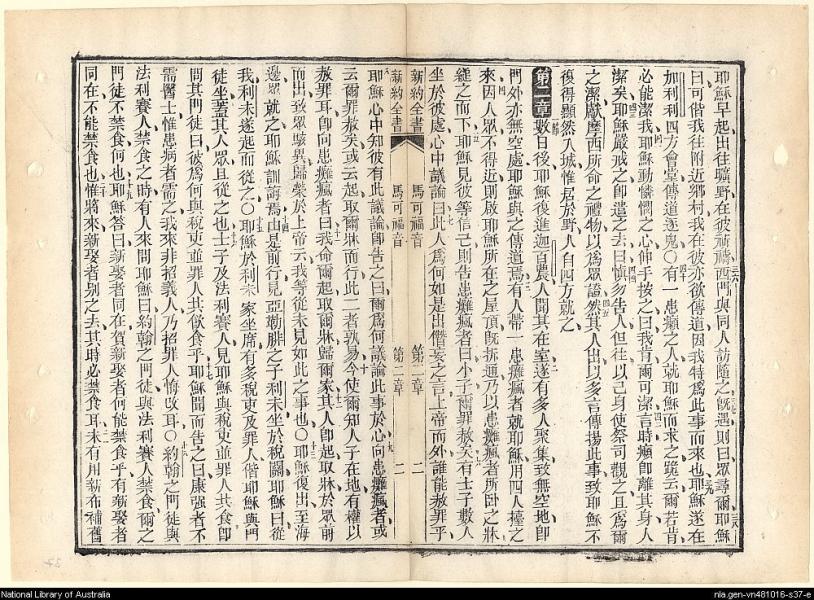 耶穌早起出往曠野在彼祈禱西門與同人訪隨之旣遇則曰眾尋爾耶穌
曰可偕我往附近鄉村我在彼亦欲傳道因我特爲此事而來也耶穌遂在
加利利四方會堂傳道逐鬼〇有一患癩之人就耶穌而求之跪云爾若肯
必能潔我耶穌動憐憫之心伸手按之曰我肯爾可潔言時癩卽離其身人
潔矣耶穌嚴戒之卽遣之去曰愼勿告人但往以己身使祭司觀之且爲爾
之潔獻摩西所命之禮物以爲眾證然其人出以多言傳揚此事致耶穌不
復得顯然入城惟居於野人自四方就之
第二章數日後耶穌復進迦百農人聞其在室遂有多人聚集致無空地卽
門外亦無空處耶穌與之傳道焉有人帶一患癱瘋者就耶穌用四人擡之
來因人眾不得近則啟耶穌所在之屋頂旣拆通乃以患癱瘋者所臥之牀
縋之而下耶穌見彼等信己則告患癱瘋者曰小子爾罪赦矣有士子數人
坐於彼處心中議論曰此人爲何如是出僭妄之言上帝而外誰能赦罪乎
新約全書 馬可福音 第二章 二
新約全書 馬可福音 第二章 二
耶穌心中知彼有此議論卽告之曰爾爲何議論此事於心向患癱瘋者或
云爾罪赦矣或云起取爾牀而行此二者孰易今使爾知人子在地有權以
赦罪耳卽向患癱瘋者曰我命爾起取爾牀歸爾家其人卽起取牀於眾前
而出致眾駭異歸榮於上帝云我等從未見如此之事也〇耶穌復出至海
邊眾就之耶穌訓誨焉由是前行見亞勒腓之子利未坐於稅關耶穌曰從
我利未遂起而從之〇耶穌於利未家坐席有多稅吏及罪人偕耶穌與門
徒坐蓋其人眾且從之也士子及法利賽人見耶穌與稅吏並罪人共食卽
問其門徒曰彼爲何與稅吏並罪人共飲食乎耶穌聞而告之曰康强者不
需醫士惟患病者需之我來非招義人乃招罪人悔改耳〇約翰之門徒與
法利賽人禁食之時有人來問耶穌曰約翰之門徒與法利賽人禁食爾之
門徒不禁食何也耶穌答曰新娶者同在賀新娶者何能禁食乎有新娶者
同在不能禁食也惟將來新娶者別之去其時必禁食耳未有用新布補舊
National Library of Australia
nla.gen-vn481016-s37-e